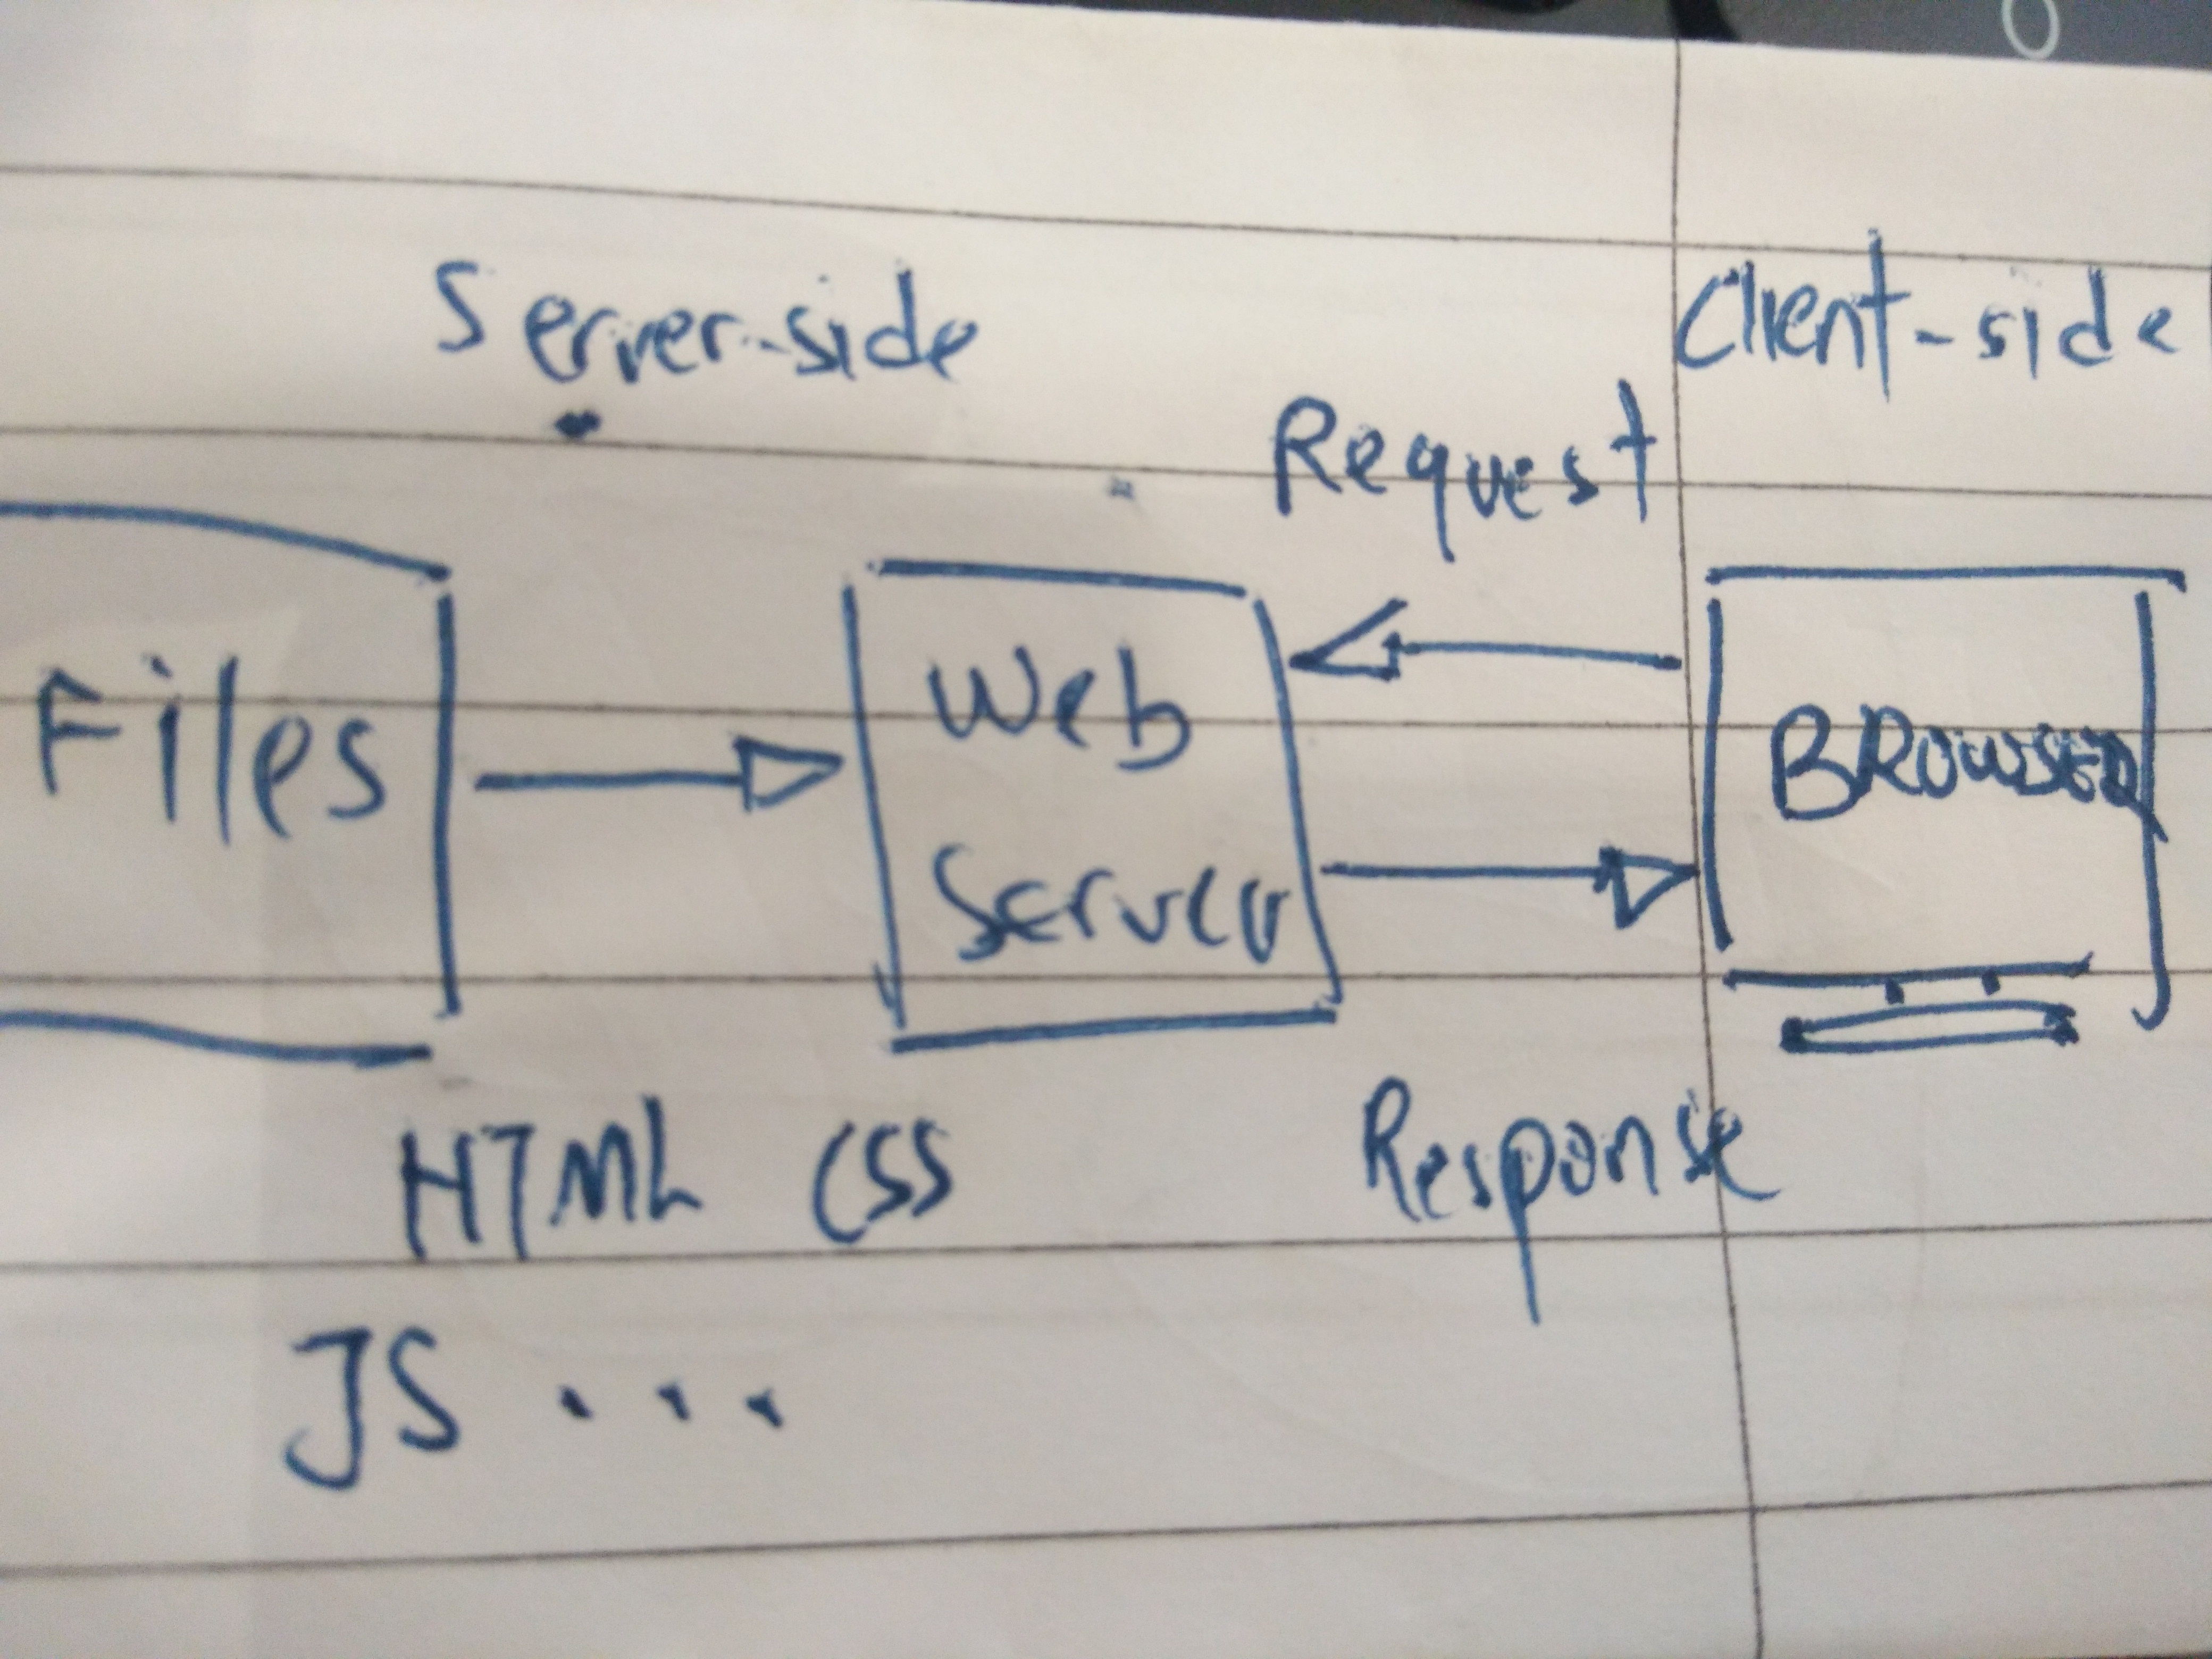 Server-side
Client-side
Request
Files
Web
Server
BROWSER
Response
HTML CSS
JS ...